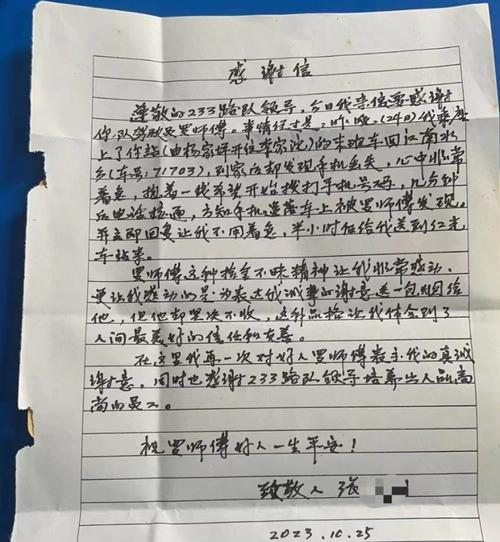 感谢信
尊敬的233路队领导,今日我来信要感谢
你队驾驶员罗师傅。事情经过是:昨晚(24日)我乘座
上了你站(由杨家坪开往李家沱)的末班车回江南水
乡(车号:71703),到家后却发现手机丢失,心中非常
着急,抱着一线希望开始拨打手机号码,几分钟
后电话接通,方知手机遗落车上被罗师傅发现。
并立即回复让我不用着急,半小时后给我送到红光
车站来。
罗师傅这种拾金不昧精神让我非常感动、
更让我感动的是为表达我诚挚的谢意送一包烟给
他,但他却坚决不收,这种品格让我体会到了
人间最美好的信任和友善。
在这里我再一次对好人罗师傅表示我的真诚
谢意,同时也感谢233路队领导培养出人品高
尚的员工。
祝罗师傅好人一生平安!
致敬人 张
2023.10.25